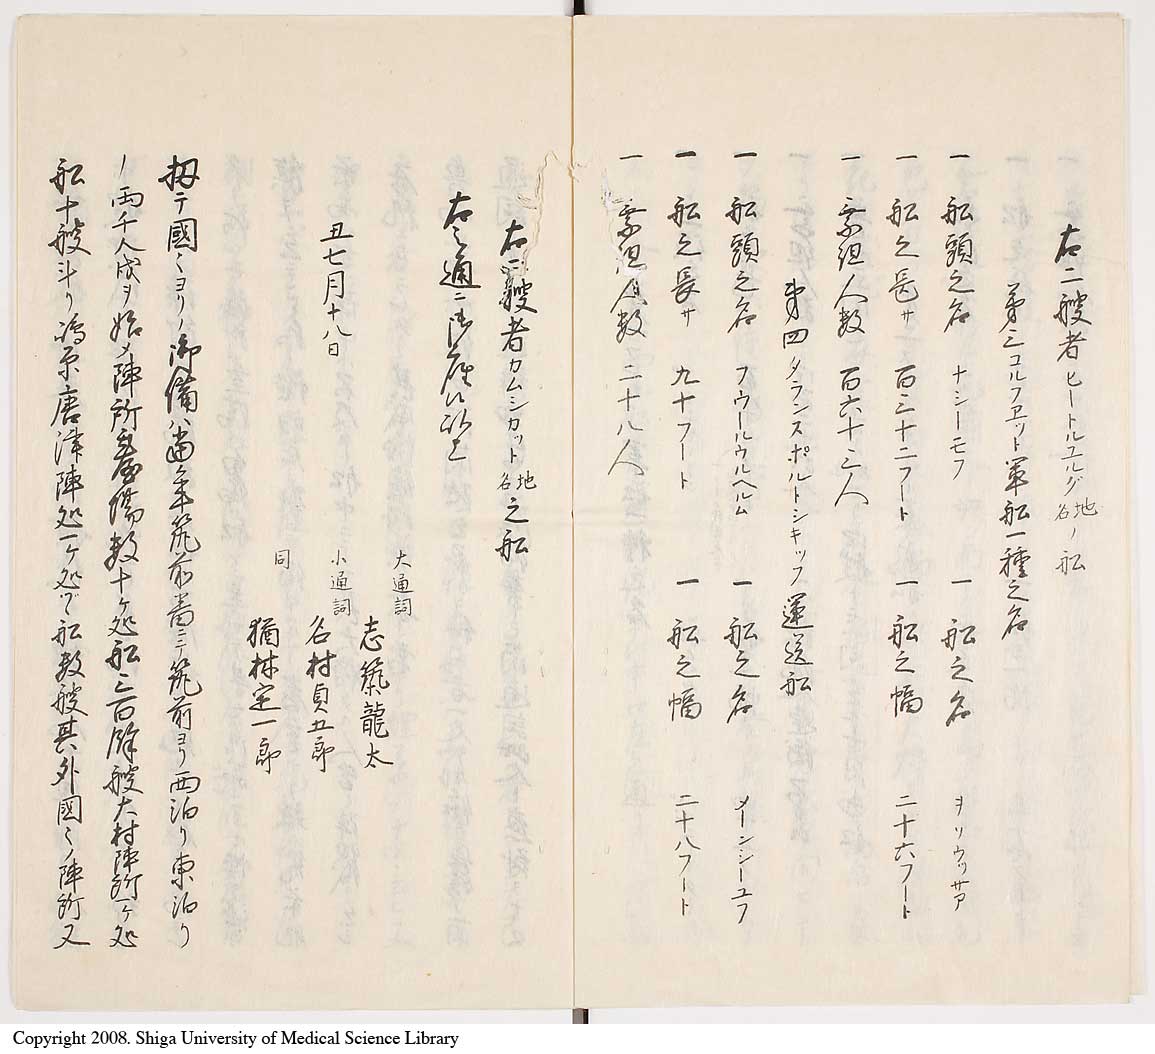 右二艘者ヒートルユルグ地名ノ船
第三コルフヱット軍船一種之名
一 船頭之名 ナシーモフ 一 船之名 ヲリウッサア
一 船之長サ 百三十二フート 一 船之幅 二十六フート
一 乗組人数 百六十三人
第四タランスポルトシキップ運送船
一 船頭之名 フウールウルヘルム 一 船之名 メーンシーユフ
一 船之長サ 九十フート 一 船之幅 二十八フート
一 乗組人数 二十八人
右一艘者カムシカット地名之船
右之通ニ御座候以上
丑七月十八日
大通詞 志築龍太
小通詞 名村貞五郎
同 猶林定一郎
扨テ國々ヨリノ御備ハ當年筑前番ニテ筑前ヨリ西泊り東泊り
ノ両千人成ヲ始メ陣所 場数十ケ処船三百余艘大村陣所一ケ処
船十艘斗り嶋原唐津陣処一ケ処ツヽ船数艘其外國々ノ陣所又
Copyright 2008. Shiga University of Medical Science Library